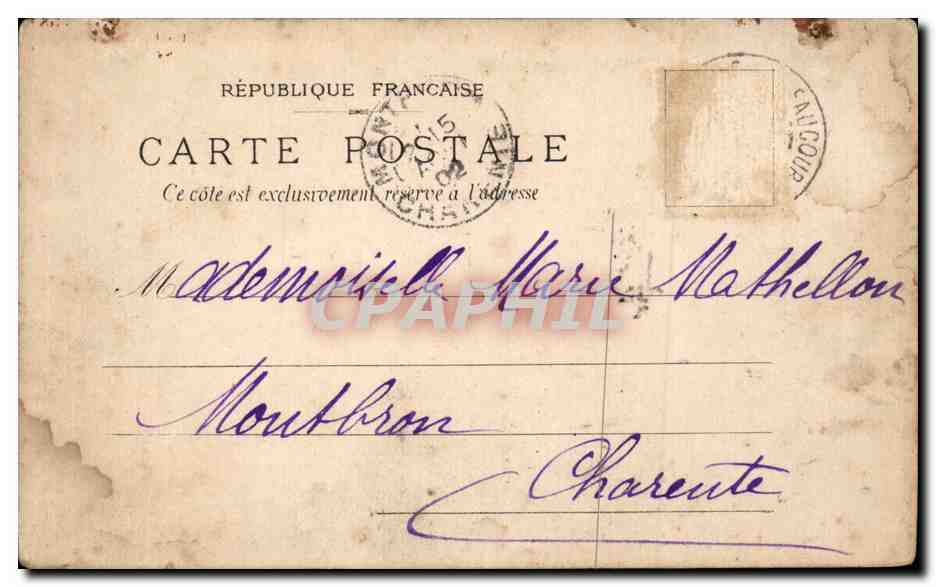 RÉPUBLIQUE FRANÇAISE
CARTE POSTALE
Ce côté est exclusivement réservé à l'adresse
MONT
15
02
CHARENTE
SAUCOUR
Mademoiselle Marie Mathellon
CPAPHIL
Montbron
Charente